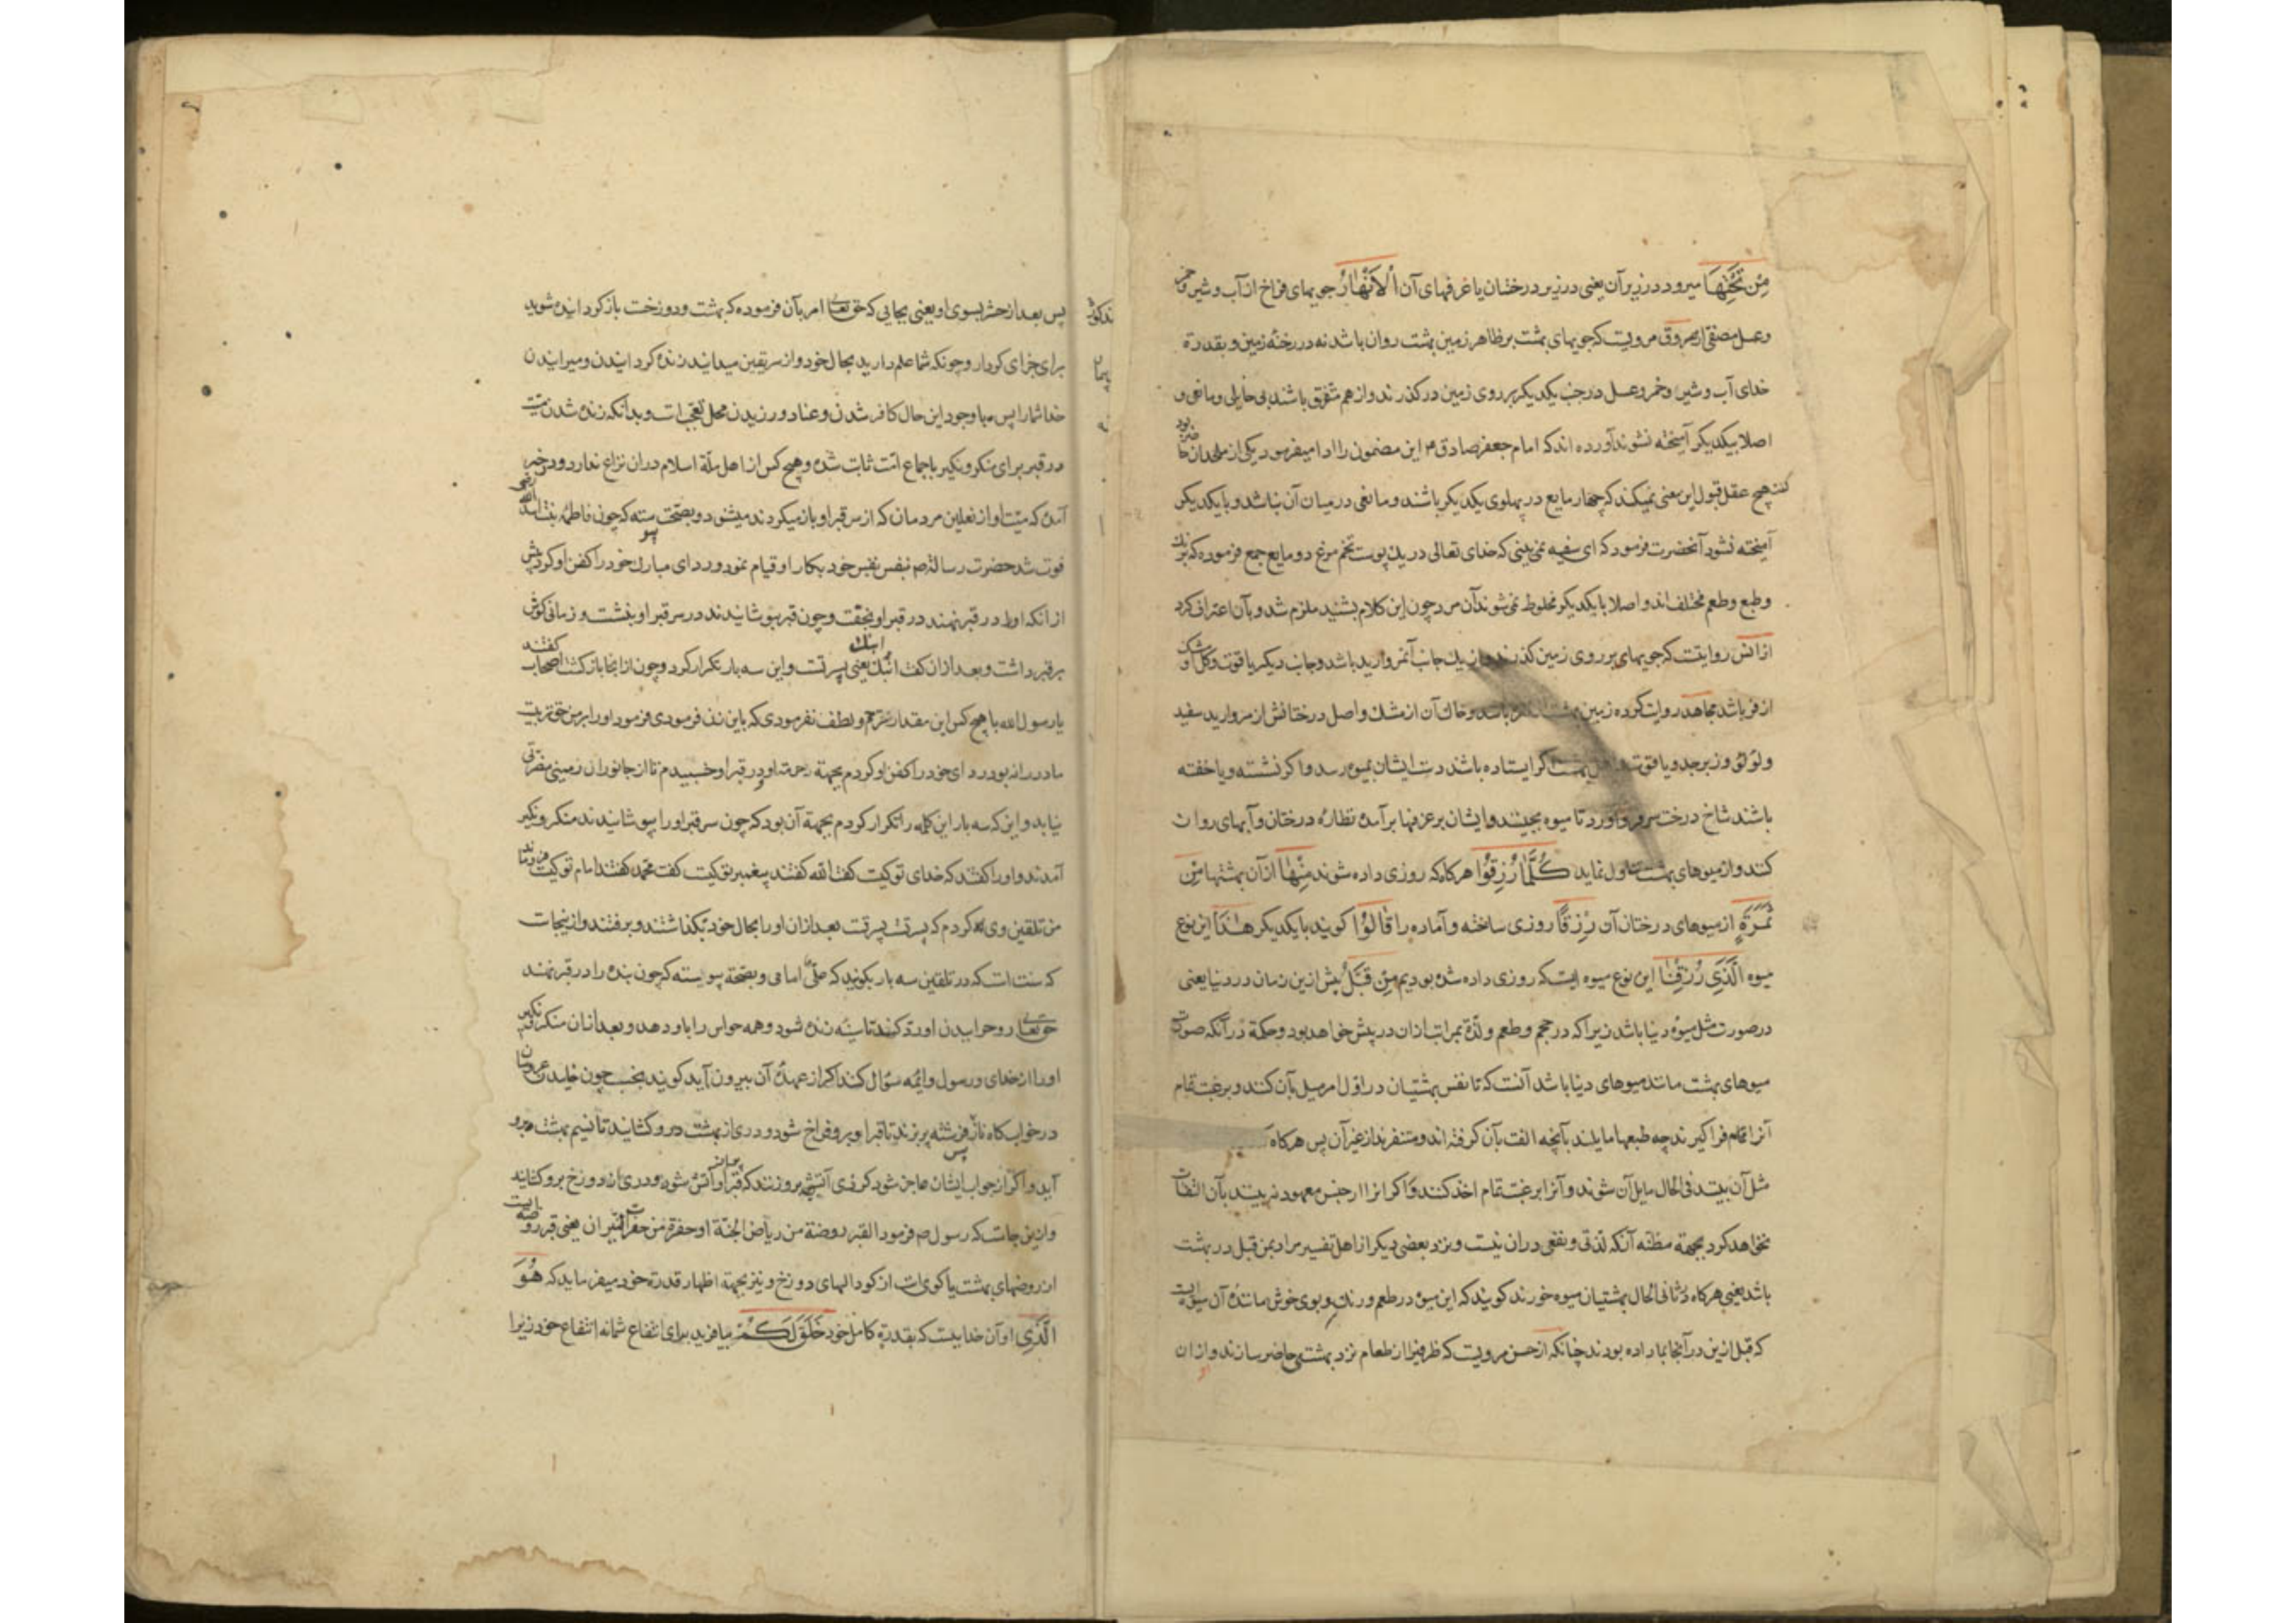 مِنْ تَحْتِهَا میرود در زیر آن یعنی در زیر درختان یا غرفهای آن اْلاَنْهَارُ جویهای فراخ از آب و شیر و خمر
وعسل مصفی از مسروق مرویست که جویهای بهشت بر ظاهر زمین بهشت روان باشد نه در رخنهٔ زمین و بقدرة
خدای آب و شیر و خمر و عسل در جنب یکدیکر بر روی زمین درکذرند و از هم متفرق باشند بی حایلی و مانعی و
اصلا بیکدیکر آمیخته نشوند آورده اند که امام جعفر صادق ۴ این مضمون را ادا میفرمود یکی از ملحدان حاضر بود
کفت هیچ عقل قبول این معنی نمیکند که چهار مایع در پهلوی یکدیکر باشند و مانعی در میان آن نباشد و با یکدیکر
آمیخته نشود آنحضرت فرمود که ای سفیه نمی بینی که خدای تعالی در یك پوست تخم مرغ دو مایع جمع فرموده که برنك
و طبع و طعم مختلف اند و اصلا با یکدیکر مخلوط نمی شوند آن مرد چون این کلام بشنید ملزم شد و بآن اعتراف کرد
از انس روایتست که جویهای بر روی زمین کذرند و از یك جانب آنمروارید باشد و جانب دیکر یاقوت و کل او مشک
اذفر باشد مجاهد روایت کرده زمین بهشت نقره باشد و خاك آن از مشك و اصل درختانش از مروارید سفید
و لؤلؤ و زبرجد و یاقوت و اهل بهشت اکر ایستاده باشند دست ایشان بمیوه رسد و اکر نشسته و یا خفته
باشند شاخ درخت سر فرو آورد تا میوه بچینند و ایشان بر غرفها برآمده نظاره درختان و آبهای روان
کنند و از میوهای بهشت تناول نماید كُلَّمَا رُزِقُوا هرکاه که روزی داده شوند مِنْهَا از آن بهشتها مِنْ
ثَمَرَةٍ از میوهای درختان آن رِزْقًا روزی ساخته و آماده را قَالُوا کویند با یکدیکر هٰذَا این نوع
میوه الَّذِي رُزِقْنَا این نوع میوه ایست که روزی داده شده بودیم مِنْ قَبْلُ پیش ازین زمان در دنیا یعنی
در صورت مثل میوهٔ دنیا باشد زیرا که در حجم و طعم و لذة بمراتب از ان در پیش خواهد بود و حکمة در آنکه صورت
میوهای بهشت مانند میوهای دنیا باشد آنست که تا نفس بهشتیان در اول امر میل بآن کند و برغبت تمام
آنرا تمام فرا کیرند چه طبعها مایلند بآنچه الفت بآن کرفته اند و متنفرند از غیر آن پس هرکاه که
مثل آن بیند فی الحال مایل آن شوند و آنرا برغبت تمام اخذ کنند و اکر انرا از جنس معهود نه بینند بآن التفات
نخواهد کرد بجهة مظنه آنکه لذتی و نفعی دران نیست و نزد بعضی دیکر از اهل تفسیر مراد بمن قبل در بهشت
باشد یعنی هرکاه در ثانی الحال بهشتیان میوه خورند کویند که این میوه در طعم و رنك و بوی خوش مانندهٔ آن میوه ایست
که قبل ازین در آنجا بما داده بودند چنانکه از حسن مرویست که ظرفیرا از طعام نزد بهشتی حاضر سازند و از ان
پس بعد از حشر بسوی او یعنی بجایی که حق تعالی امر بآن فرموده که بهشت و دوزخست باز کردانیده شوید
برای جزای کردار و چونکه شما علم دارید بحال خود و از سر یقین میدانید زنده کردانیدن و میرانیدن
خدا شما را پس با وجود این حال کافر شدن و عناد ورزیدن محل تعجب است و بدانکه زنده شدن میت
در قبر برای منکر و نکیر باجماع امت ثابت شده و هیچ کس از اهل ملّة اسلام دران نزاع ندارد و در خبر
آمده که میت آواز نعلین مردمان که از سر قبر او باز میکردند میشنود و بصحت پیوسته که چون فاطمه بنت اسد رضی الله
فوت شد حضرت رسالة ص بنفس نفیس خود بکار او قیام نمود و ردای مبارك خود را کفن او کرد پیش
از انکه او را در قبر نهند در قبر او بخفت و چون قبر بپوشانیدند در سر قبر او بنشست و زمانی کوش
بر قبر داشت و بعد ازان کفت ابنك ابنك یعنی پسرتست و این سه بار تکرار کرد و چون از انجا بازکشت اصحاب کفتند
یا رسول الله با هیچ کس این مقدار ترحم و لطف نفرمودی که باین زن فرمودی فرمود او را بر من حق تربیت
مادرانه بود ردای خود را کفن او کردم بجهة رحمت او و در قبر او خسبیدم تا از جانوران زمینی مضرتی
نیابد و این که سه بار این کلمه را تکرار کردم بجهة آن بود که چون سر قبر او را بپوشانیدند منکر و نکیر
آمدند و او را کفتند که خدای تو کیست کفت الله کفتند پیغمبر تو کیست کفت محمد کفتند امام تو کیست فرو ماند
من تلقین وی کردم که پسرت پسرت بعد ازان او را بحال خود بکذاشتند و برفتند و ازینجاست
که سنت است که در تلقین سه بار بکویند که علیّ امامی و بصحة پیوسته که چون بنده را در قبر نهند
حق تعالی روح را ببدن او رد کند تا سینه زنده شود و همه حواس را باو دهد و بعد ازان منکر و نکیر
او را از خدای و رسول و ایمه سؤال کنند اکر از عهدهٔ آن بیرون آید کویند بخسب چون خابیدن عروسان
در خوابکاه ناز فرشته پر بزند تا قبر او بر وی فراخ شود و دری از بهشت درو کشایند تا نسیم بهشت درو
آید و اکر از جواب ایشان عاجز شود کرزی آتشی برو زنند که قبر او پر از آتش شود پس دری از دوزخ برو کشایند
و ازین جاست که رسول ص فرمود القبر روضة من ریاض الجنّة او حفرة من حفرات النیران یعنی قبر روضه ایست
از روضهای بهشت یا کوی است از کودالهای دوزخ و نیز بجهة اظهار قدرة خود میفرماید که هُوَ
الَّذِي او آن خداییست که بقدرة کامل خود خَلَقَ لَكُمْ بیافرید برای انتفاع شما نه انتفاع خود زیرا